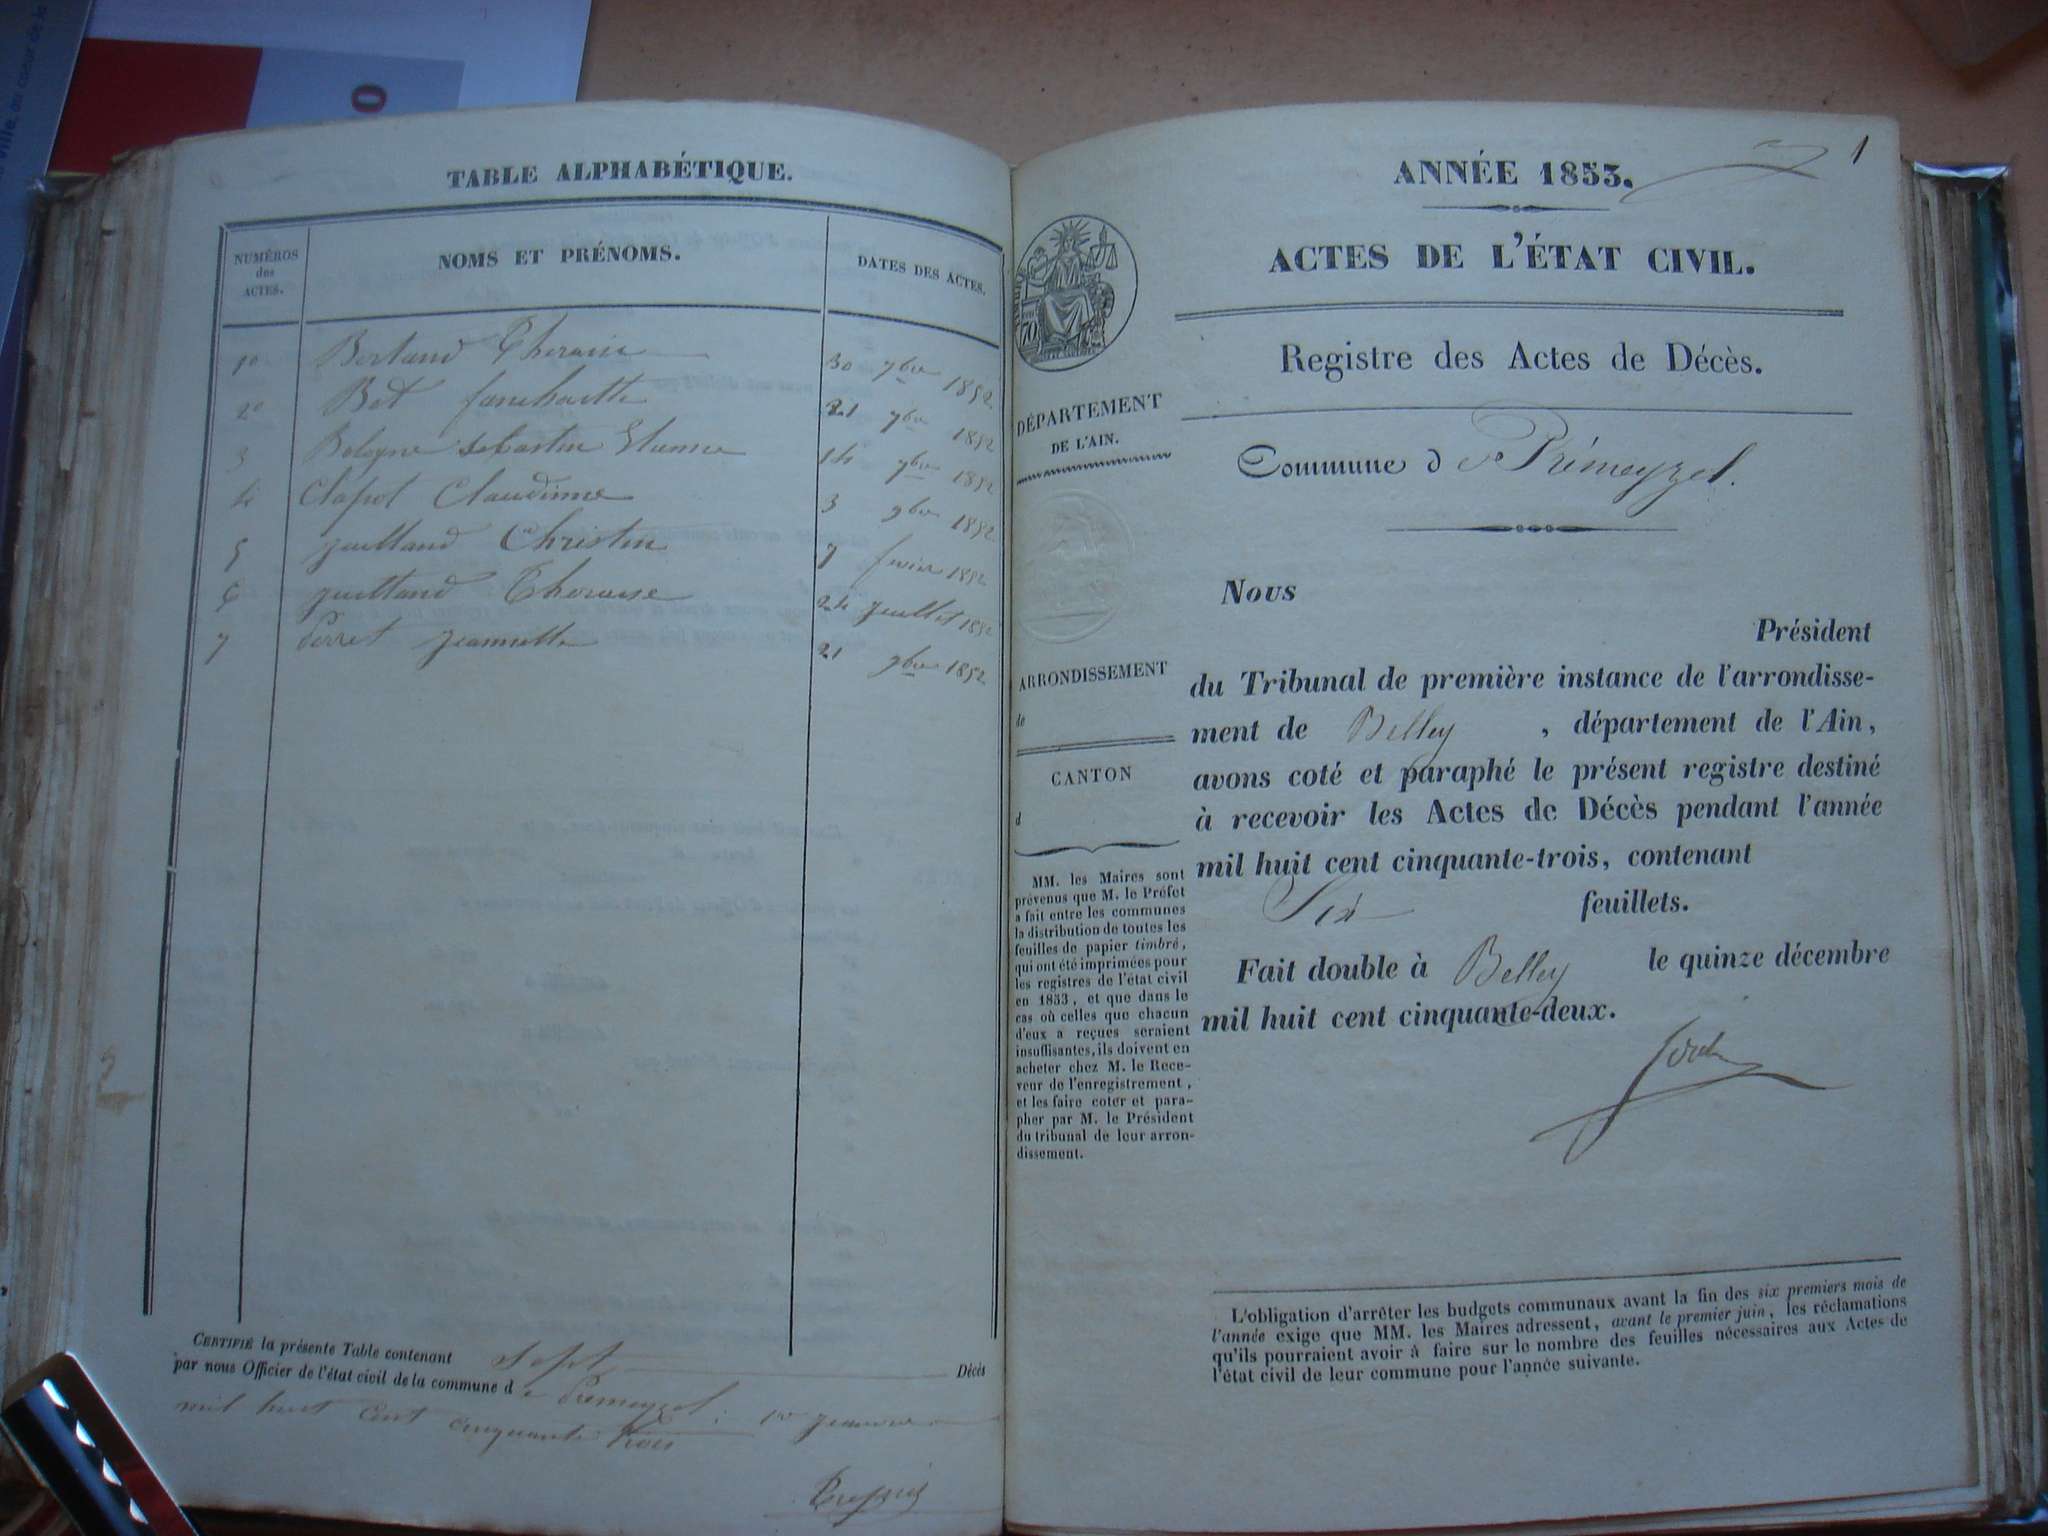 TABLE ALPHABÉTIQUE.
NUMÉROS
des
ACTES.
NOMS ET PRÉNOMS.
DATES DES ACTES.
1º Bertand 30 7bre 1852
2º Bot 21 7bre 1852
3 Bologne Sebastien Etienne 14 7bre 1852
4 Clapot Claudinne 3 9bre 1852
5 guilland Christin 7 fevrier 1852
6 guilland Theraise 24 juillet 1852
7 Perret jeannette 21 9bre 1852
CERTIFIÉ la présente Table contenant Sept Décès
par nous Officier de l'état civil de la commune de Premeyzel
mil huit cent cinquante trois
1
ANNÉE 1853.
ACTES DE L'ÉTAT CIVIL.
Registre des Actes de Décès.
Commune de Prémeyzel.
70
DÉPARTEMENT
DE L'AIN.
ARRONDISSEMENT
de
CANTON
d
MM. les Maires sont
prévenus que M. le Préfet
a fait entre les communes
la distribution de toutes les
feuilles de papier timbré,
qui ont été imprimées pour
les registres de l'état civil
en 1853, et que dans le
cas où celles que chacun
d'eux a reçues seraient
insuffisantes, ils doivent en
acheter chez M. le Rece-
veur de l'enregistrement,
et les faire coter et para-
pher par M. le Président
du tribunal de leur arron-
dissement.
Nous
Président
du Tribunal de première instance de l'arrondisse-
ment de Belley, département de l'Ain,
avons coté et paraphé le présent registre destiné
à recevoir les Actes de Décès pendant l'année
mil huit cent cinquante-trois, contenant
Six feuillets.
Fait double à Belley le quinze décembre
mil huit cent cinquante-deux.
L'obligation d'arrêter les budgets communaux avant la fin des six premiers mois de
l'année exige que MM. les Maires adressent, avant le premier juin, les réclamations
qu'ils pourraient avoir à faire sur le nombre des feuilles nécessaires aux Actes de
l'état civil de leur commune pour l'année suivante.